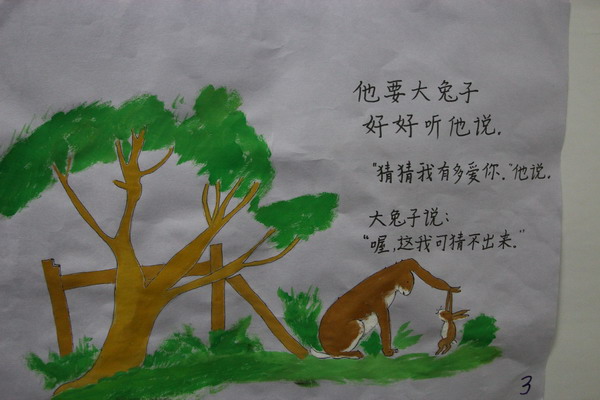 他要大兔子
好好听他说.
“猜猜我有多爱你.”他说.
大兔子说:
“喔,这我可猜不出来.”
3